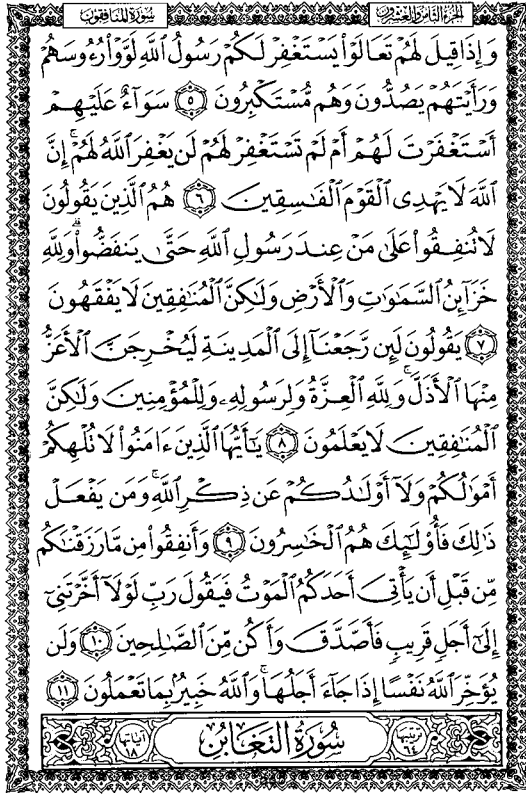 الجزء الثامن والعشرون
سورة المنافقون
وَإِذَا قِيلَ لَهُمْ تَعَالَوْا۟ يَسْتَغْفِرْ لَكُمْ رَسُولُ ٱللَّهِ لَوَّوْا۟ رُءُوسَهُمْ
وَرَأَيْتَهُمْ يَصُدُّونَ وَهُم مُّسْتَكْبِرُونَ ٥ سَوَآءٌ عَلَيْهِمْ
أَسْتَغْفَرْتَ لَهُمْ أَمْ لَمْ تَسْتَغْفِرْ لَهُمْ لَن يَغْفِرَ ٱللَّهُ لَهُمْ ۚ إِنَّ
ٱللَّهَ لَا يَهْدِى ٱلْقَوْمَ ٱلْفَـٰسِقِينَ ٦ هُمُ ٱلَّذِينَ يَقُولُونَ
لَا تُنفِقُوا۟ عَلَىٰ مَنْ عِندَ رَسُولِ ٱللَّهِ حَتَّىٰ يَنفَضُّوا۟ ۗ وَلِلَّهِ
خَزَآئِنُ ٱلسَّمَـٰوَٰتِ وَٱلْأَرْضِ وَلَـٰكِنَّ ٱلْمُنَـٰفِقِينَ لَا يَفْقَهُونَ
٧ يَقُولُونَ لَئِن رَّجَعْنَآ إِلَى ٱلْمَدِينَةِ لَيُخْرِجَنَّ ٱلْأَعَزُّ
مِنْهَا ٱلْأَذَلَّ ۚ وَلِلَّهِ ٱلْعِزَّةُ وَلِرَسُولِهِۦ وَلِلْمُؤْمِنِينَ وَلَـٰكِنَّ
ٱلْمُنَـٰفِقِينَ لَا يَعْلَمُونَ ٨ يَـٰٓأَيُّهَا ٱلَّذِينَ ءَامَنُوا۟ لَا تُلْهِكُمْ
أَمْوَٰلُكُمْ وَلَآ أَوْلَـٰدُكُمْ عَن ذِكْرِ ٱللَّهِ ۚ وَمَن يَفْعَلْ
ذَٰلِكَ فَأُو۟لَـٰٓئِكَ هُمُ ٱلْخَـٰسِرُونَ ٩ وَأَنفِقُوا۟ مِن مَّا رَزَقْنَـٰكُم
مِّن قَبْلِ أَن يَأْتِىَ أَحَدَكُمُ ٱلْمَوْتُ فَيَقُولَ رَبِّ لَوْلَآ أَخَّرْتَنِىٓ
إِلَىٰٓ أَجَلٍ قَرِيبٍ فَأَصَّدَّقَ وَأَكُن مِّنَ ٱلصَّـٰلِحِينَ ١٠ وَلَن
يُؤَخِّرَ ٱللَّهُ نَفْسًا إِذَا جَآءَ أَجَلُهَا ۚ وَٱللَّهُ خَبِيرٌۢ بِمَا تَعْمَلُونَ ١١
ترتيبها ٦٤ سُورَةُ التَّغَابُنِ آياتها ١٨